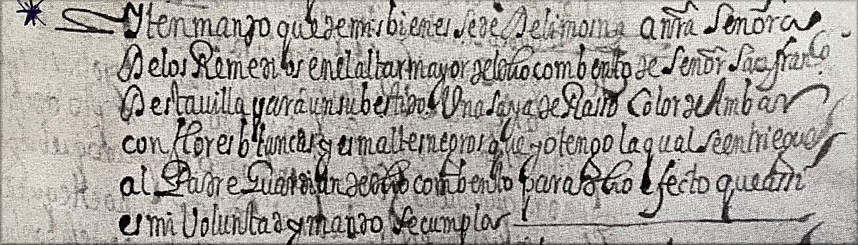 Yten mando que de mis bienes se de de limosna a nrã Señora
de los Remedios en el altar mayor del dho combento de Señor San franco
de esta villa para un su bestido Una saya de Raso Color de Ambar
con flores blancas y esmaltes negros que yo tengo la qual se entriegue
al Padre Guardian de dho combento para dho efecto que assi
es mi Voluntad y mando se cumpla